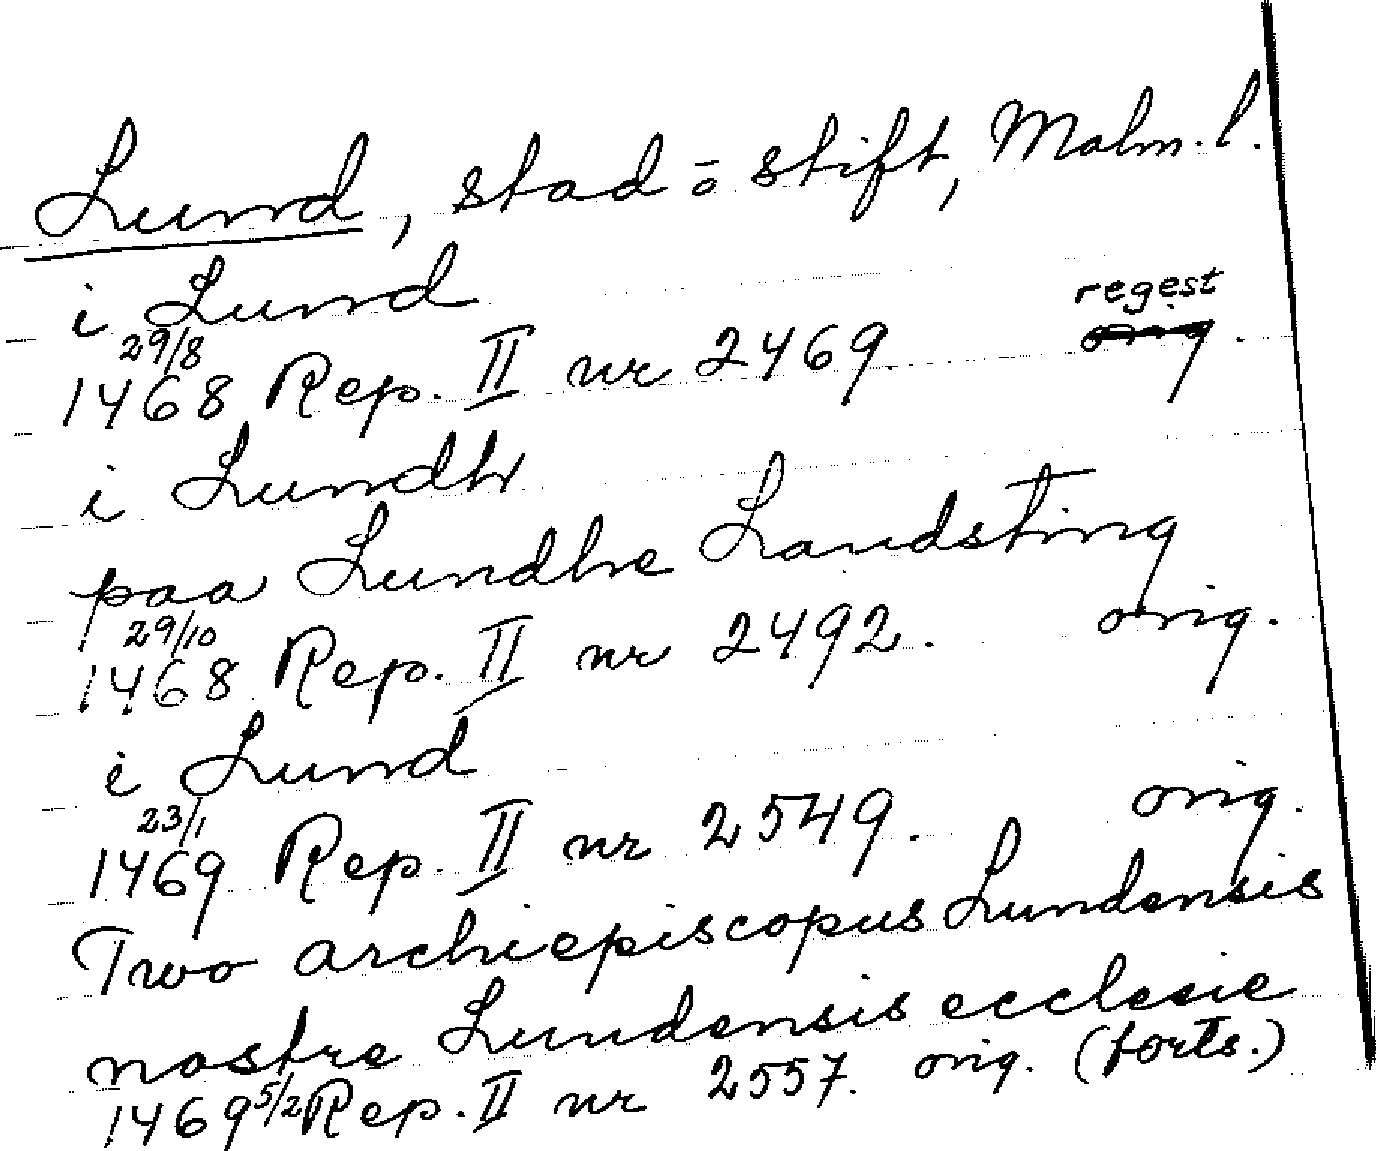 Lund, stad o stift, Malm. l.
i Lund
29/8 regest
1468 Rep. II nr 2469 orig.
i Lundh
paa Lundhe Landsting
29/10
1468 Rep. II nr 2492. orig.
i Lund
23/1
1469 Rep. II nr 2549. orig.
Two archiepiscopus Lundensis
nostre Lundensis ecclesie
1469 5/2 Rep. II nr 2557. orig. (forts.)